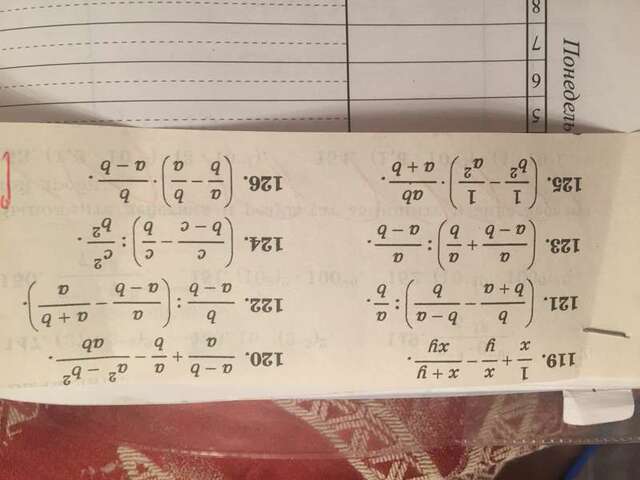 119. 1/x + x/y − (x + y)/xy.
120. (a − b)/a + a/b − (a² − b²)/ab.
121. (b/(b + a) − (b − a)/b) : a/b.
122. b/(a − b) : (a/(a − b) − (a + b)/a).
123. (a/(a − b) + a/b) : a/(a − b).
124. (c/(b − c) − c/b) : c²/b².
125. (1/b² − 1/a²) · ab/(a + b).
126. (a/b − b/a) · b/(a − b).
Понедель
5
6
7
8